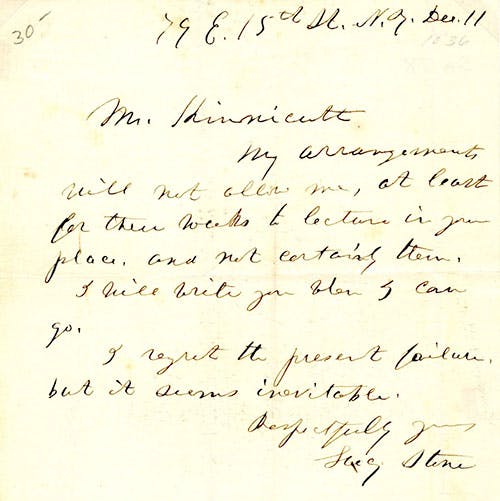 30-
79 E. 15th St. N.Y. Dec. 11
Mr. Kinnicutt
My arrangements
will not allow me, at least
for three weeks to lecture in your
place, and not certainly then.
I will write you when I can
go.
I regret the present failure,
but it seems inevitable.
Respectfully yours
Lucy Stone